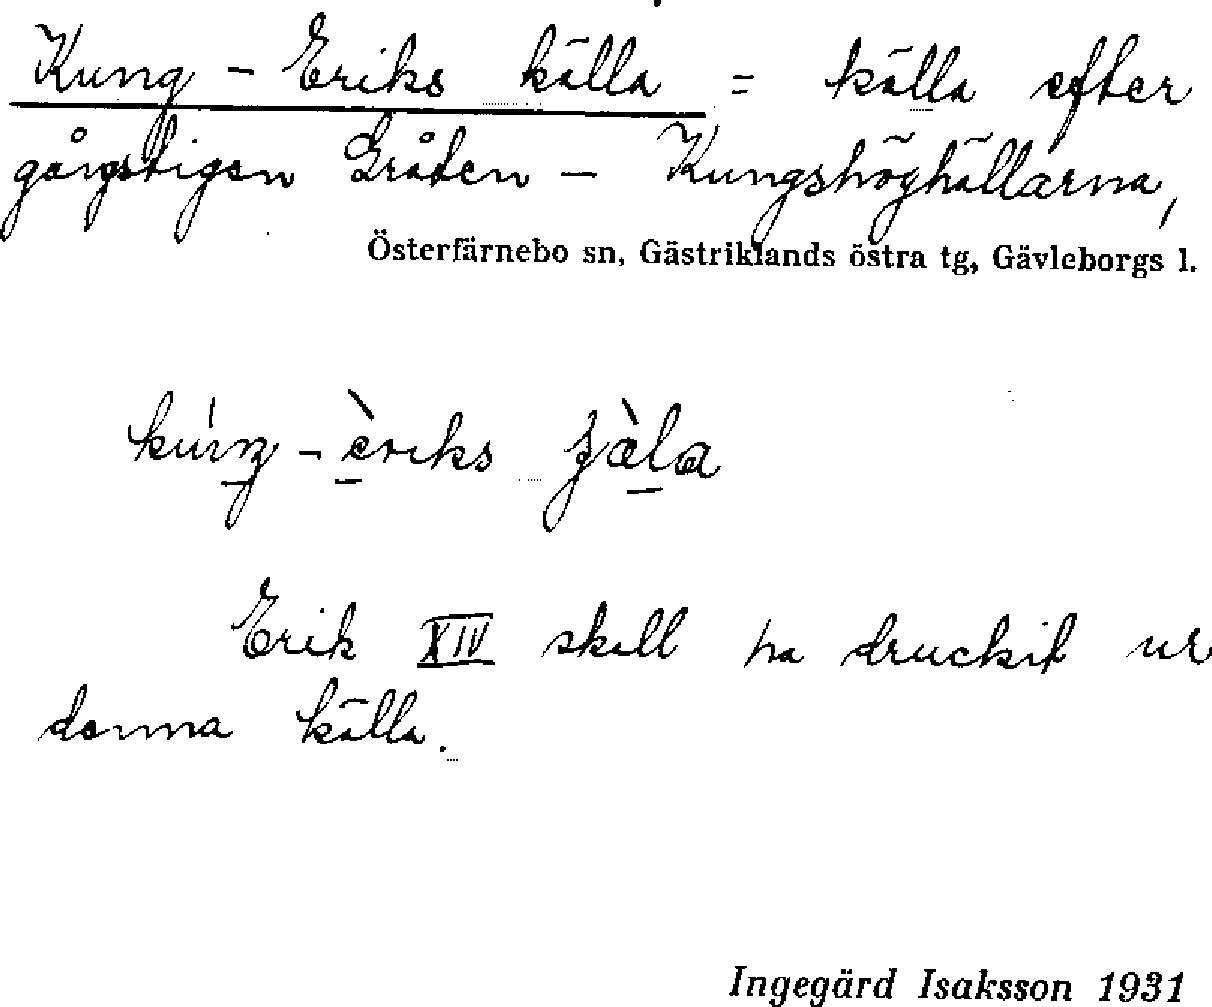 Kung-Eriks källa = källa efter
gångstigen Gråten - Kungshöghällarna,
Österfärnebo sn, Gästriklands östra tg, Gävleborgs l.
Erik XIV skall ha druckit ur
denna källa.
Ingegärd Isaksson 1931